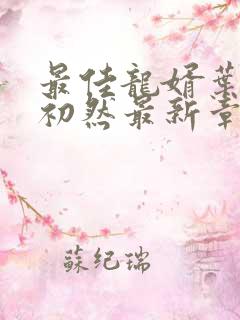 最佳龍婿葉
初然最新章
蘇紀瑞